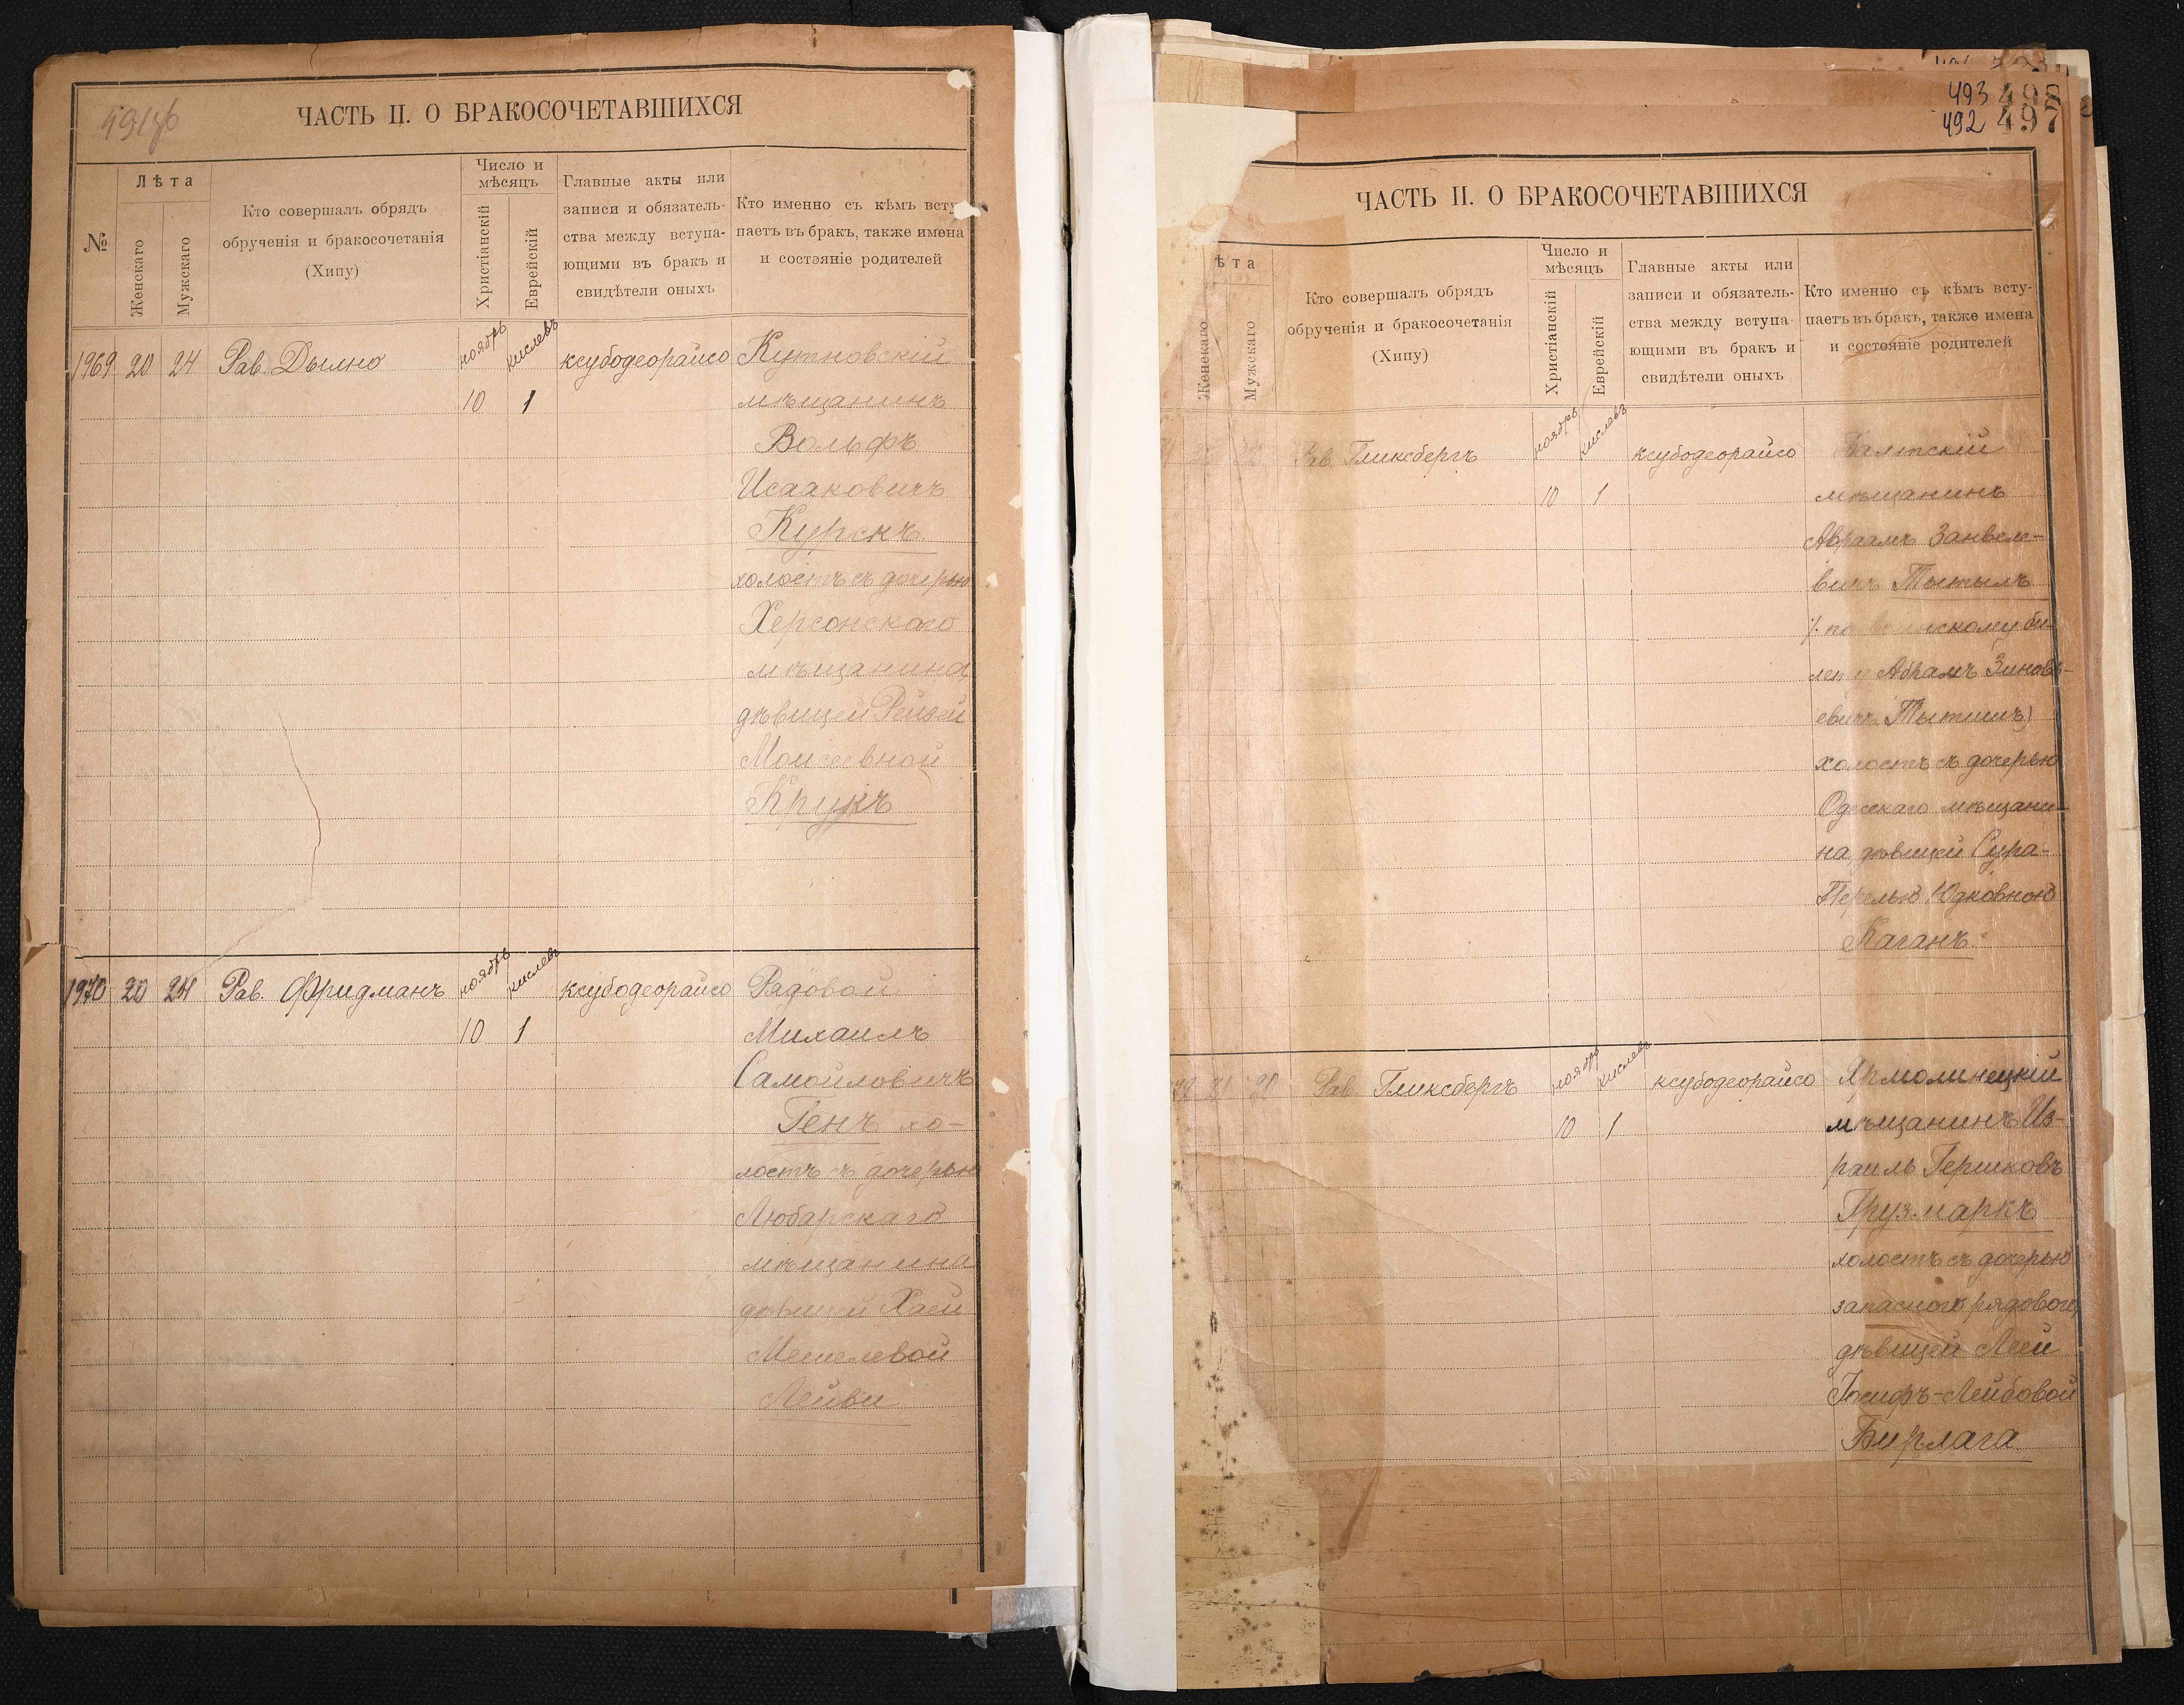 491об
ЧАСТЬ II. О БРАКОСОЧЕТАВШИХСЯ
№
Лѣта
Женскаго
Мужскаго
Кто совершалъ обрядъ
обрученія и бракосочетанія
(Хипу)
Число и
мѣсяцъ
Христіанскій
Еврейскій
Главные акты или
записи и обязатель-
ства между вступа-
ющими въ бракъ и
свидѣтели оныхъ
Кто именно съ кѣмъ всту
паетъ въ бракъ, также имена
и состэяніе родителей
1969 20 24 Рав. Дылно ноябрь кислевъ ксубодеорайсо Кутновскій
10 1 мѣщанинъ
Вольфъ
Исааковичъ
Курскъ
холостъ съ дочерью
Херсонскаго
мѣщанина,
дѣвицей Рейзей
Моисеевной
Крукъ
1970 20 24 Рав. Фридманъ ноябрь кислевъ ксубодеорайсо Рядовой
10 1 Михаилъ
Самойловичъ
Генъ хо-
лостъ съ дочерью
Любарскаго
мѣщанина
дѣвицей Хаей
Мешелевой
Лейви
493 498
492 497
ЧАСТЬ II. О БРАКОСОЧЕТАВШИХСЯ
ѣта
Женскаго
Мужскаго
Кто совершалъ обрядъ
обрученія и бракосочетанія
(Хипу)
Число и
мѣсяцъ
Христіанскій
Еврейскій
Главные акты или
записи и обязатель-
ства между вступа
ющими въ бракъ и
свидѣтели оныхъ
Кто именно съ кѣмъ всту-
паетъ въ бракъ, также имена
и состояніе родителей
Рав. Гликсбергъ ноябрь кислевъ ксубодеорайсо Балтскій
10 1 мѣщанинъ
Авраамъ Занвеле-
вичъ Тытылъ
по скому би-
лету Абрамъ Зиновь-
евичъ Тытилъ)
холостъ съ дочерью
Одесскаго мѣщани-
на, дѣвицей Сура-
Перелью Юдковною
Каганъ
21 Рав. Гликсбергъ ноябрь кислевъ ксубодеорайсо Ярмолинецкій
10 1 мѣщанинъ Из-
раиль Гершковъ
Грузмаркъ
холостъ съ дочерью
запасного рядового,
дѣвицей Леей
Іосифъ-Лейбовой
Бирлага